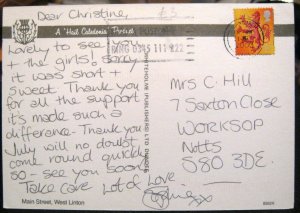 Dear Christine, £3
A Hail Caledonia Product
Lovely to see you
+ the girls! Sorry
it was short +
sweet. Thank you
for all the support
it's made such a
difference - Thank you
July will no doubt
come round quick
so - see you soon
Take care Lots of Love
Mrs C. Hill
7 Saxton Close
WORKSOP
Notts
S80 3DE.
WHITEHOLME (PUBLISHERS) LTD DUNDEE
Main Street, West Linton